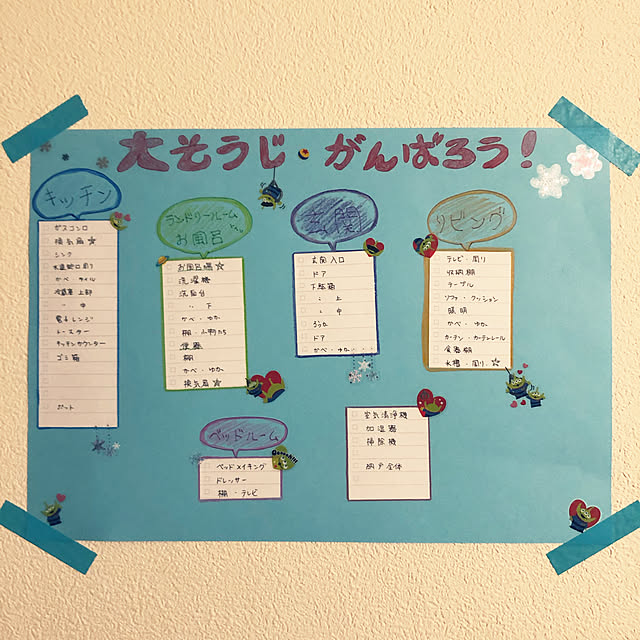 大そうじ・がんばろう!
キッチン
ガスコンロ
換気扇☆
シンク
水道蛇口周り
かべ・タイル
冷蔵庫上部
〃 中
電子レンジ
トースター
キッチンカウンター
ゴミ箱
ポット
ランドリールーム
お風呂
お風呂場☆
洗濯機
洗面台
〃 下
かべ・ゆか
棚・小物たち
便器
棚
かべ・ゆか
換気扇☆
玄関
玄関入口
ドア
下駄箱
〃 上
〃 中
ろうか
ドア
かべ・ゆか
リビング
テレビ・周り
収納棚
テーブル
ソファ・クッション
照明
かべ・ゆか
カーテン・カーテンレール
食器棚
水槽・周り☆
ベッドルーム
ベッドメイキング
ドレッサー
棚・テレビ
空気清浄機
加湿器
掃除機
網戸全体